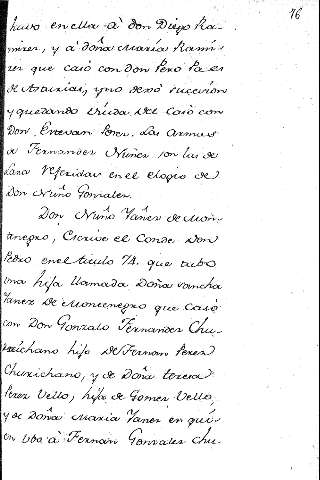 76
huvo en ella à don Diego Ra-
mirez, y à doña Maria Rami-
rez que casò con don Pero Paez
de Asturias, y no dexò succesion
y quedando viuda del casò con
Don Estevan Perez. Las Armas
de Fernandez Nuñez son las de
Lara referidas en el elogio de
Don Nuño Gonzalez.
Don Nuño Yañez de Mon-
tenegro, Escrive el Conde Don
Pedro en el titulo 74. que tubo
una hija llamada Doña Sancha
Yanez de Montenegro que casò
con Don Gonzalo Fernandez Chu-
richano hijo de Fernan Perez
Churichano, y de Doña teresa
Perez Vello, hija de Gomez Vello,
y de Doña Maria Yanez en quí-
en ubo à Fernan Gonzalez Chu-